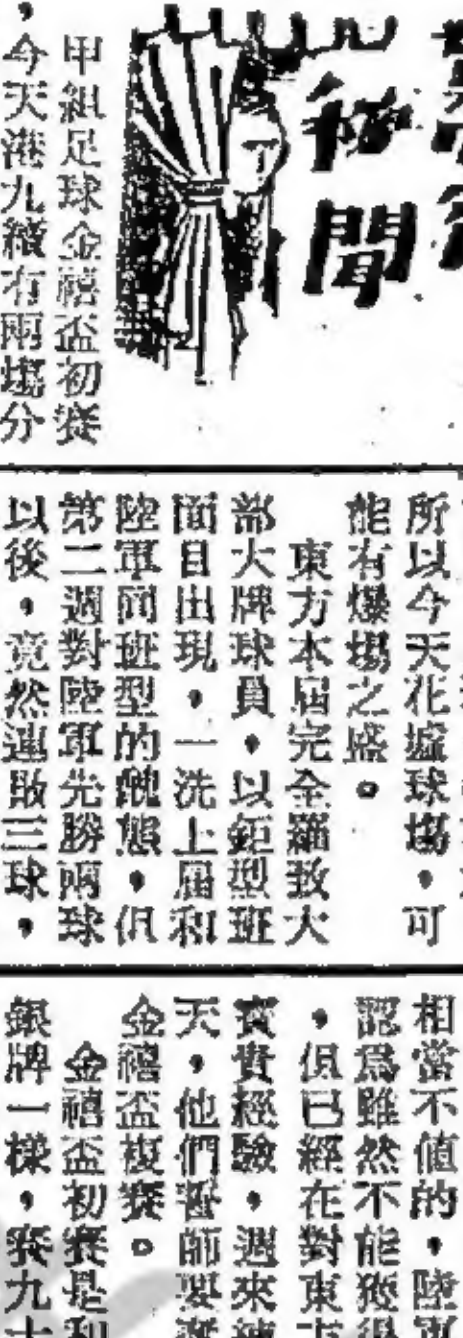 秘聞
甲組足球金禧盃初賽
，今天港九續有兩場分
所以今天花墟球場，可
能有爆場之盛。
東方本屆完全羅致大
部大牌球員，以鉅型班
面目出現，一洗上屆和
陸軍同班型的醜態，但
第二週對陸軍先勝兩球
以後，竟然連敗三球，
相當不值的，陸軍
認爲雖然不能獲得
，但已經在對東方
寶貴經驗，週來
天，他們誓師要
金禧盃複賽。
金禧盃初賽是和
銀牌一樣，賽九十